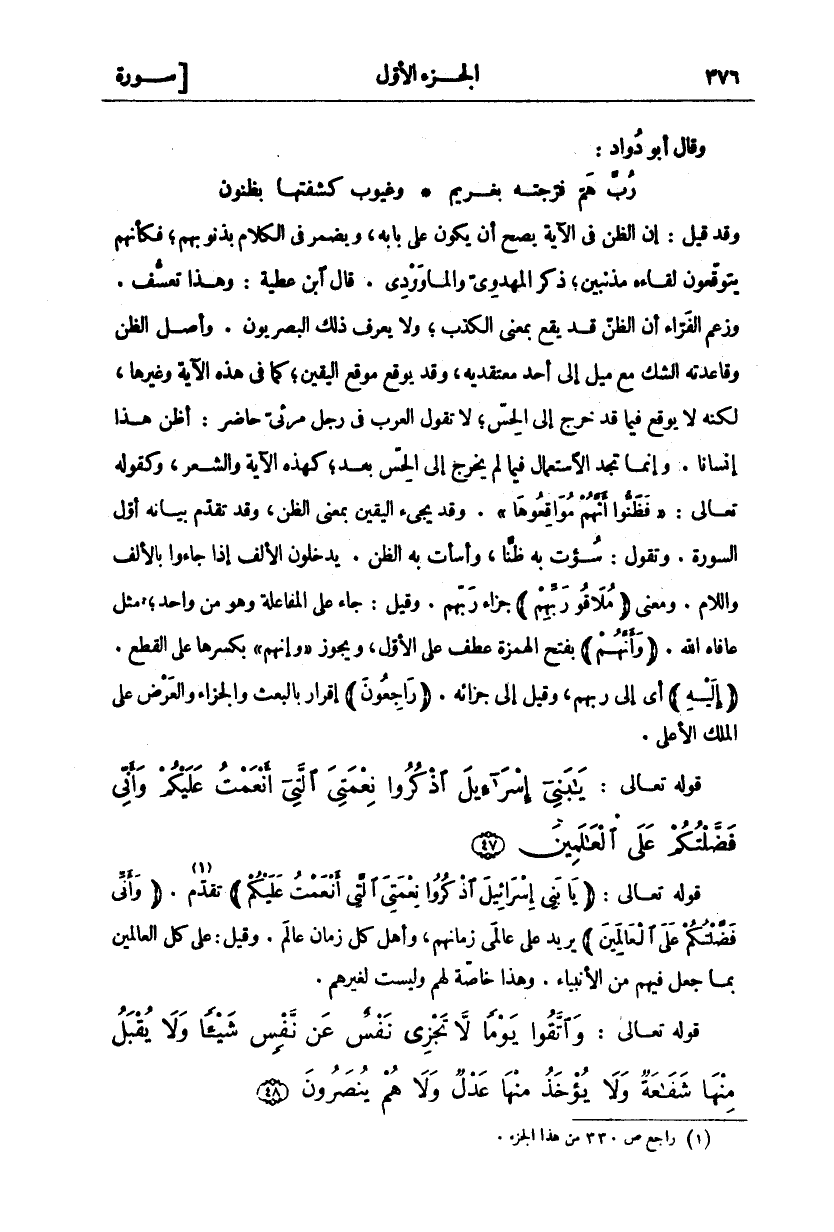 ٣٧٦ الجـزء الأوّل [ سـورة
وقال أبو دُواد :
رُبّ هَمٍّ فرّجتـه بغـريم * وغيوب كشفتهـا بظنون
وقد قيل : إن الظن فى الآية يصح أن يكون على بابه، ويضمر فى الكلام بذنوبهم؛ فكأنهم
يتوقّعون لقـاءه مذنبين؛ ذكر المهدوىّ والمـاوَرْدِى . قال آبن عطية : وهـذا تعسُّف .
وزعم الفَرّاء أن الظنّ قـد يقع بمعنى الكذب؛ ولا يعرف ذلك البصريون . وأصـل الظن
وقاعدته الشك مع ميل إلى أحد معتقديه، وقد يوقع موقع اليقين؛ كما فى هذه الآية وغيرها،
لكنه لا يوقع فيما قد خرج إلى الحِسّ؛ لا تقول العرب فى رجل مرئىّ حاضر : أظن هـذا
إنسانا . وإنمـا تجد الآستعمال فيما لم يخرج إلى الحِسّ بعـد؛ كهذه الآية والشعـر، وكقوله
تعـالى : « فَظَنُّوا أَنَّهُمْ مُوَاقِعُوهَا » . وقد يجىء اليقين بمعنى الظن، وقد تقدّم بيـانه أوّل
السورة . وتقول : سُؤت به ظنًّا، وأسأت به الظن . يدخلون الألف إذا جاءوا بالألف
واللام . ومعنى ﴿ مُلَاقُو رَبِّهِمْ ﴾ جزاء ربّهم . وقيل : جاء على المفاعلة وهو من واحد؛ مثل
عافاه الله . ﴿ وَأَنَّهُـمْ ﴾ بفتح الهمزة عطف على الأوّل، ويجوز «وإنهم» بكسرها على القطع .
﴿ إِلَيْـهِ ﴾ أى إلى ربهم، وقيل إلى جزائه . ﴿ رَاجِعُونَ ﴾ إقرار بالبعث والجزاء والعَرْض على
الملك الأعلى .
قوله تعـالى : يَـٰبَنِىٓ إِسْرَٰٓءِيلَ ٱذْكُرُوا نِعْمَتِىَ ٱلَّتِىٓ أَنْعَمْتُ عَلَيْكُمْ وَأَنِّى
فَضَّلْتُكُمْ عَلَى ٱلْعَـٰلَمِينَ ﴿٤٧﴾
قوله تعـالى : ﴿ يَا بَنِى إِسْرَائِيلَ ٱذْكُرُوا نِعْمَتِىَ ٱلَّتِى أَنْعَمْتُ عَلَيْكُمْ ﴾ تقدّم (١) . ﴿ وَأَنِّى
فَضَّلْتُكُمْ عَلَى ٱلْعَالَمِينَ ﴾ يريد على عالَمى زمانهم، وأهل كل زمان عالَم . وقيل : على كل العالمين
بمـا جعل فيهم من الأنبياء . وهذا خاصّة لهم وليست لغيرهم .
قوله تعـالى : وَٱتَّقُوا يَوْمًا لَّا تَجْزِى نَفْسٌ عَن نَّفْسٍ شَيْـًٔا وَلَا يُقْبَلُ
مِنْهَا شَفَـٰعَةٌ وَلَا يُؤْخَذُ مِنْهَا عَدْلٌ وَلَا هُمْ يُنصَرُونَ ﴿٤٨﴾
(١) راجع ص ٣٣٠ من هذا الجزء .